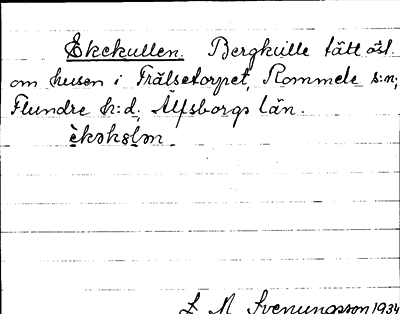 Ekekullen. Bergkulle tätt östl.
om husen i Frälsetorpet, Rommele s:n;
Flundre h:d, Älfsborgs län.
èkəkɵlən
L M Svenungsson 1934